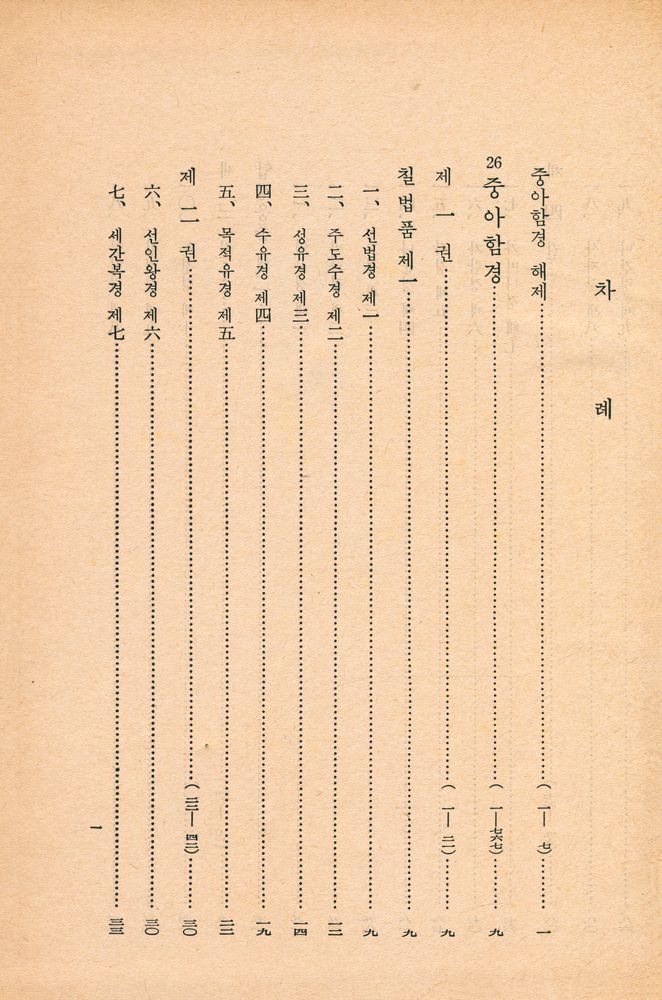 차 례
중아함경 해제 ( 一 — 七) 一
26 중아함경 ( 一 — 七六七) 九
제 一 권 ( 一 — 二一) 九
칠법품 제一 九
一、 선법경 제一 九
二、 주도수경 제二 一二
三、 성유경 제三 一四
四、 수유경 제四 一九
五、 목적유경 제五 二二
제 二 권 ( 二三 — 四二) 三〇
六、 선인왕경 제六 三〇
七、 세간복경 제七 三三
一